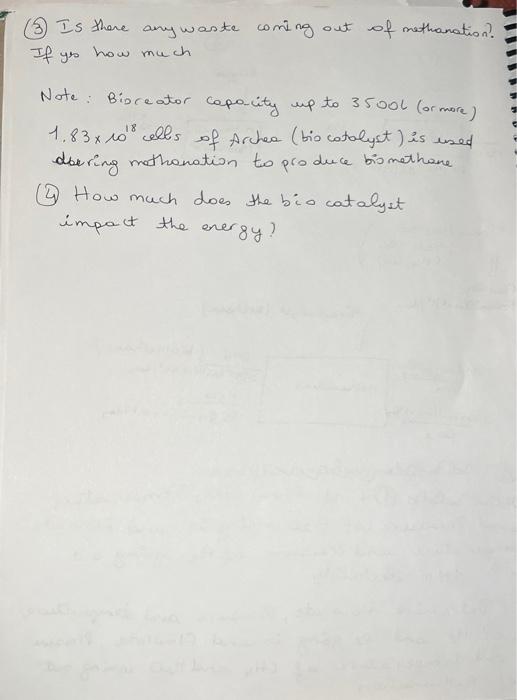 (3) Is there any waste coming out of methanation?
If yes how much
Note : Bioreator capacity up to 3500L (or more)
1.83 x 10^18 cells of Archea (bio catalyst) is used
during methanation to produce biomethane
(4) How much does the bio catalyst
impact the energy?